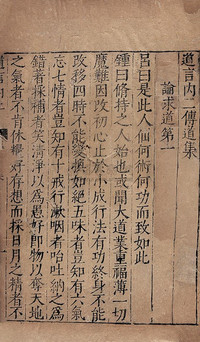 道言內二傳道集
論求道第一
呂曰是此人仙何術何功而致如此
鍾曰修持之人始也或聞大道業重福薄一切
魔難因改初心止於小成行法有功終身不能
改移四時不能變換如絕五味者豈知有六氣
忘七情者豈知有十戒行漱咽者咍吐納之爲
錯著採補者笑清淨以爲愚好即物以奪天地
之氣者不肯休糧好存想而採日月之精者不